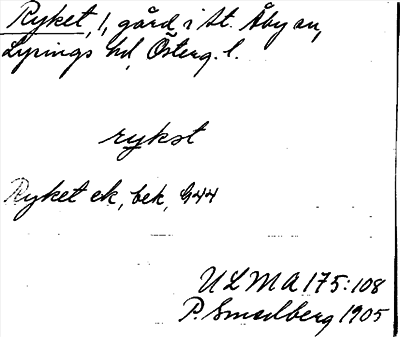 Ryket, 1, gård i St. Åby sn,
Lysings hd, Österg. l.
rykst
Ryket ek, bek, G44
ULMA 175:108
P. Smedberg 1905